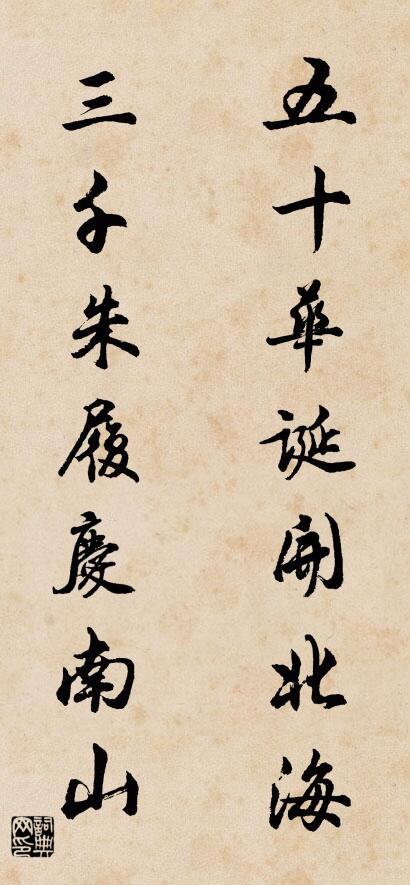 五十華誕開北海
三千朱履慶南山
詞典網印